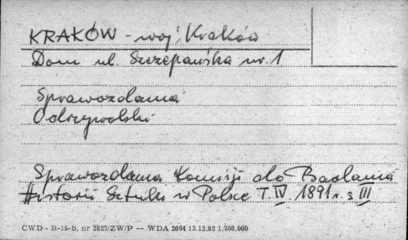 KRAKÓW - woj. Kraków
Dom ul. Szczepańska nr. 1
Sprawozdania
Odrzywolski
Sprawozdania Komisji do Badania
Historii Sztuki w Polsce T. IV. 1891 r. s III
CWD - 18-16-b, nr 2827/ZW/P -- WDA 2604 13.12.62 1,700.000